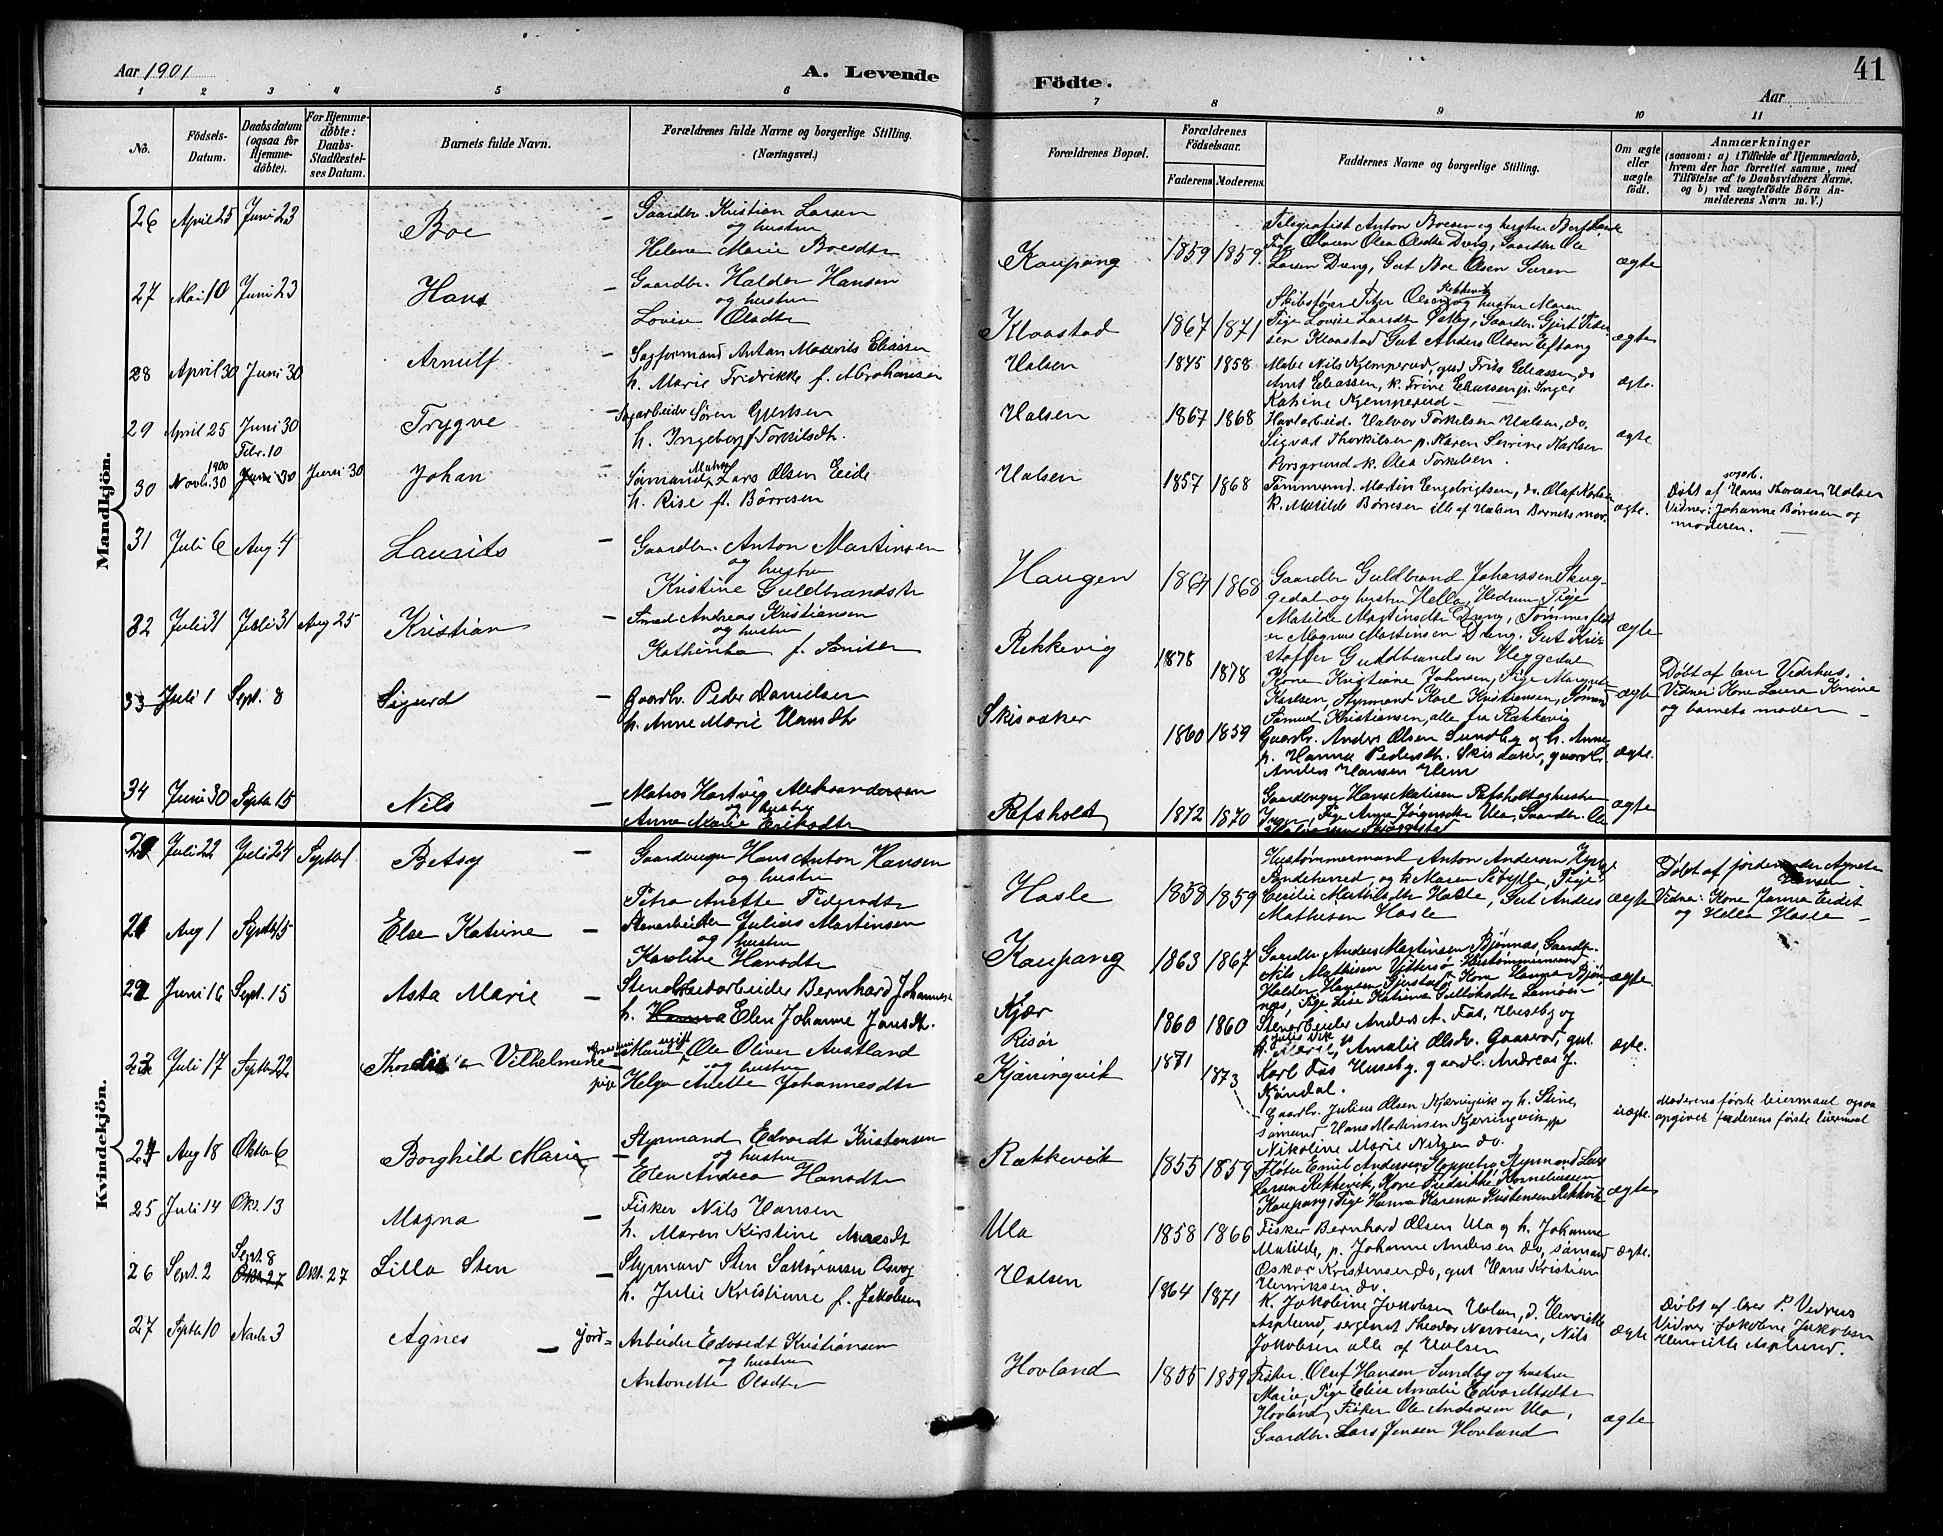 Aar 1901
A. Levende
Födte.
41
Aar
1 2 3 4 5 6 7 8 9 10 11
No.
Födsels-
Datum.
Daabsdatum
(ogsaa for
Hjemme-
døbte).
For Hjemme-
døbte:
Daabs-
Stadfæstel-
ses Datum.
Barnets fulde Navn.
Forældrenes fulde Navne og borgerlige Stilling.
(Næringsvei.)
Forældrenes Bopæl.
Forældrenes
Födselsaar.
Faderens. Moderens.
Faddernes Navne og borgerlige Stilling.
Om ægte
eller
uægte
födt.
Anmærkninger
(saasom: a) i Tilfælde af Hjemmedaab,
hvem der har forrettet samme, med
Tilföielse af to Daabsvidners Navne.
og b) ved uægtefödte Börn An-
melderens Navn m. V.)
Mandkjön.
26 April 25 Juni 23
Boe
Gaardbr. Kristian Larsen
og hustru
Helene Marie Boesdtr
Kaupang 1859 1859
Telegrafist Anton Boesen og hustru
Larsen Dreng, Gut Boe Olsen
ægte
27 Mai 10 Juni 23
Hans
Gaardbr. Halder Hansen
og hustru
Lovise Olsdtr
Klaastad 1867 1871
Skibsfører Peter Olsen Rekkevik og hustru Maren
Pige Lovise Larsdtr Østby, Gaardbr. Gjert Peder
sen Klaastad Gut Anders Olsen Eftang
ægte
28 April 30 Juni 30
Arnulf
Sagformand Anton Mauritz Eliassen
h. Marie Fridrikke f. Abrahamsen
Valsen 1845 1858
Maler Nils Kjemperud, gud Frits Eliassen, do
Arnt Eliassen, k. Trine Eliassen p. Inger
Katrine Kjemperud
ægte.
29 April 25 Juni 30
Trygve
Sagarbeider Søren Gjertsen
h. Ingeborg f. Torkilsdtr.
Valsen 1867 1868
Havlarbeid. Halvor Torkelsen Valsen, do.
Sigvat Thorkilsen p. Maren Serine Karlsen
Porsgrund k. Olea Torkelsen.
ægte
30 Novb. 30 1900 Febr. 10 Juni 30 Juni 30
Johan
Sømand Matros Lars Olsen Eide
h. Rise f. Børresen
Valsen 1857 1868
Tømmermd. Martin Engebrigtsen, do. Olaf Karlsen
k. Matilde Børresen alle af Valsen Barnets mor.
ægte.
Døbt af Hans Thoresen Valsen
Vidner: Johanne Børresen og
moderen.
31 Juli 6 Aug 4
Laurits
Gaardbr. Anton Martinsen
og hustru
Kristine Guldbrandsdtr
Haugen 1864 1868
Gaardbr Guldbrand Johanssen Skug-
gedal og hustru Hella, Hedrum, Pige
Matilde Martinsdtr Dreng, Tømmerflød
er Magnus Martinsen Dreng. Gut Kris-
stoffer Guldbrandsen Heggedal
ægte
32 Juli 31 Juli 31 Aug 25
Kristian
Smed Andreas Kristiansen
og hustru
Kathinka f.
Rekkevig 1878 1878
Kone Kristiane Johnsen, Pige Margret
Karlsen, Styrmand Karl Kristiansen, Sømand
Kristiansen, alle fra Rækkevig
ægte
Døbt af lær Vidrhus.
Vidner: Kone Laura
og barnets moder
33 Juli 1 Sept. 8
Sigurd
Gaardbr. Peder Danielsen
h. Anne Marie Hansdtr
Skisaaker 1860 1859
Gaardbr. Anders Olsen Sundby og h. Anne
p. Hanna Pedersdtr. Skisaaker, gaardbr.
Anders Hansen Hem
ægte.
34 Juni 30 Septbr 15
Nils
Matros Hartvig Aleksandersen
og hustru
Anne Marie Eriksdtr
Refsholt 1872 1870
Gaardbruger Hans Matisen Refsholt og hustru
Inger, Pige Anne Jørgensdtr Ula, Gaardbr. Ole
ægte
Kvindekjön.
20 Juli 22 Juli 24 Septbr 1
Betsy
Gaardbruger Hans Anton Hansen
og hustru
Petra Anette Pedersdtr
Hasle 1858 1859
Hustømmermand Anton Andersen
Sandeherred og h. Maren Sibylle, Pige
Cecilie Mathisdtr Hasle, Gut Anders
Mathesen Hasle
ægte
Døbt af jordemoder Agnete
Hansen
Vidner: Kone Janna Eidet
og Hella Hasle
21 Aug 1 Septbr 15
Else Katrine
Stenarbeider Julius Martinsen
og hustru
Karoline Hansdtr
Kaupang 1863 1867
Gaardbr Anders Martinsen Bjønnes, Gaardbr.
Nils Mathisen Vittersø, Hustømmermand
Halder Hansen Gjerstad, Kone Hanna Bjøn-
nes, Pige Lise Katrine Gulliksdtr Lamøen
ægte
22 Juni 16 Sept. 15
Asta Marie
Stenarbeider Bernhard Johannes
h. Elen Johanne Jansdtr.
Kjær 1860 1860
Stenarbeider Anders A. Fos, Huseby og
Amalie Olsdtr. Gaaserød, gut.
Karl Fos Huseby. gaardbr. Andreas J.
Kjøndal.
ægte.
23 Juli 17 Septbr 22
Thordis Vilhelmine
ugift Ole Oliver Austland
og hustru
pige Helga Anette Johannesdtr
Risør
Kjærringvik 1871 1873
Gaardbr. Julius Olsen Kjærringvik og h. Stine,
sømand Hans Martinsen Kjærringvik pp
Nikoline Marie Nilsen do.
uægte.
Moderens første leiermaal ogsaa
opgivet faderens første leiermaal
24 Aug 18 Oktbr 6
Borghild Marie
Styrmand Edvardt Kristensen
og hustru
Elen Andrea Hansdtr
Rækkevik 1855 1859
Fløter Emil Andersen Kloppebro, Styrmand Lars
Larsen Rekkevik, Kone Fredrikke Korneliussen
Kaupang, Pige Hanna Karense Kristensen Rekkvik
ægte
25 Juli 14 Okt. 13
Magna
Fisker Nils Hansen
h. Maren Kirstine
Ula 1858 1866
Fisker Bernhard Olsen Ula og h. Johanne
Matilde, p. Johanne Andersen do, sømand
Oskar Kristensen do, gut Hans Kristian
Henriksen do.
ægte.
26 Sept. 2 Sept. 8 Okt. 27 Okt. 27
Lilla Sten
Styrmand Sten Osvog
h. Julie Kristiane f. Jakobsen
Valsen 1864 1871
K. Jakobine Jakobsen Valsen, d. Henriette
Asplund, sergeant Theodor Narvesen, Nils
Jakobsen alle af Valsen
ægte
Døbt af lærer P. Vidrhus
Vidner: Jakobine Jakobsen
Henriette Asplund.
27 Septbr 10 Novbr 3
Agnes
Jord-
Arbeider Edvardt Kristiansen
og hustru
Antonette Olsdtr
Hovland 1855 1859
Fisker Oluf Hansen Sundby og hustru
Marie, Pige Elise Amalie Edvardtsdtr
Hovland, Fisker Ole Andersen Ula,
Gaardbr. Lars Jensen Hovland
ægte